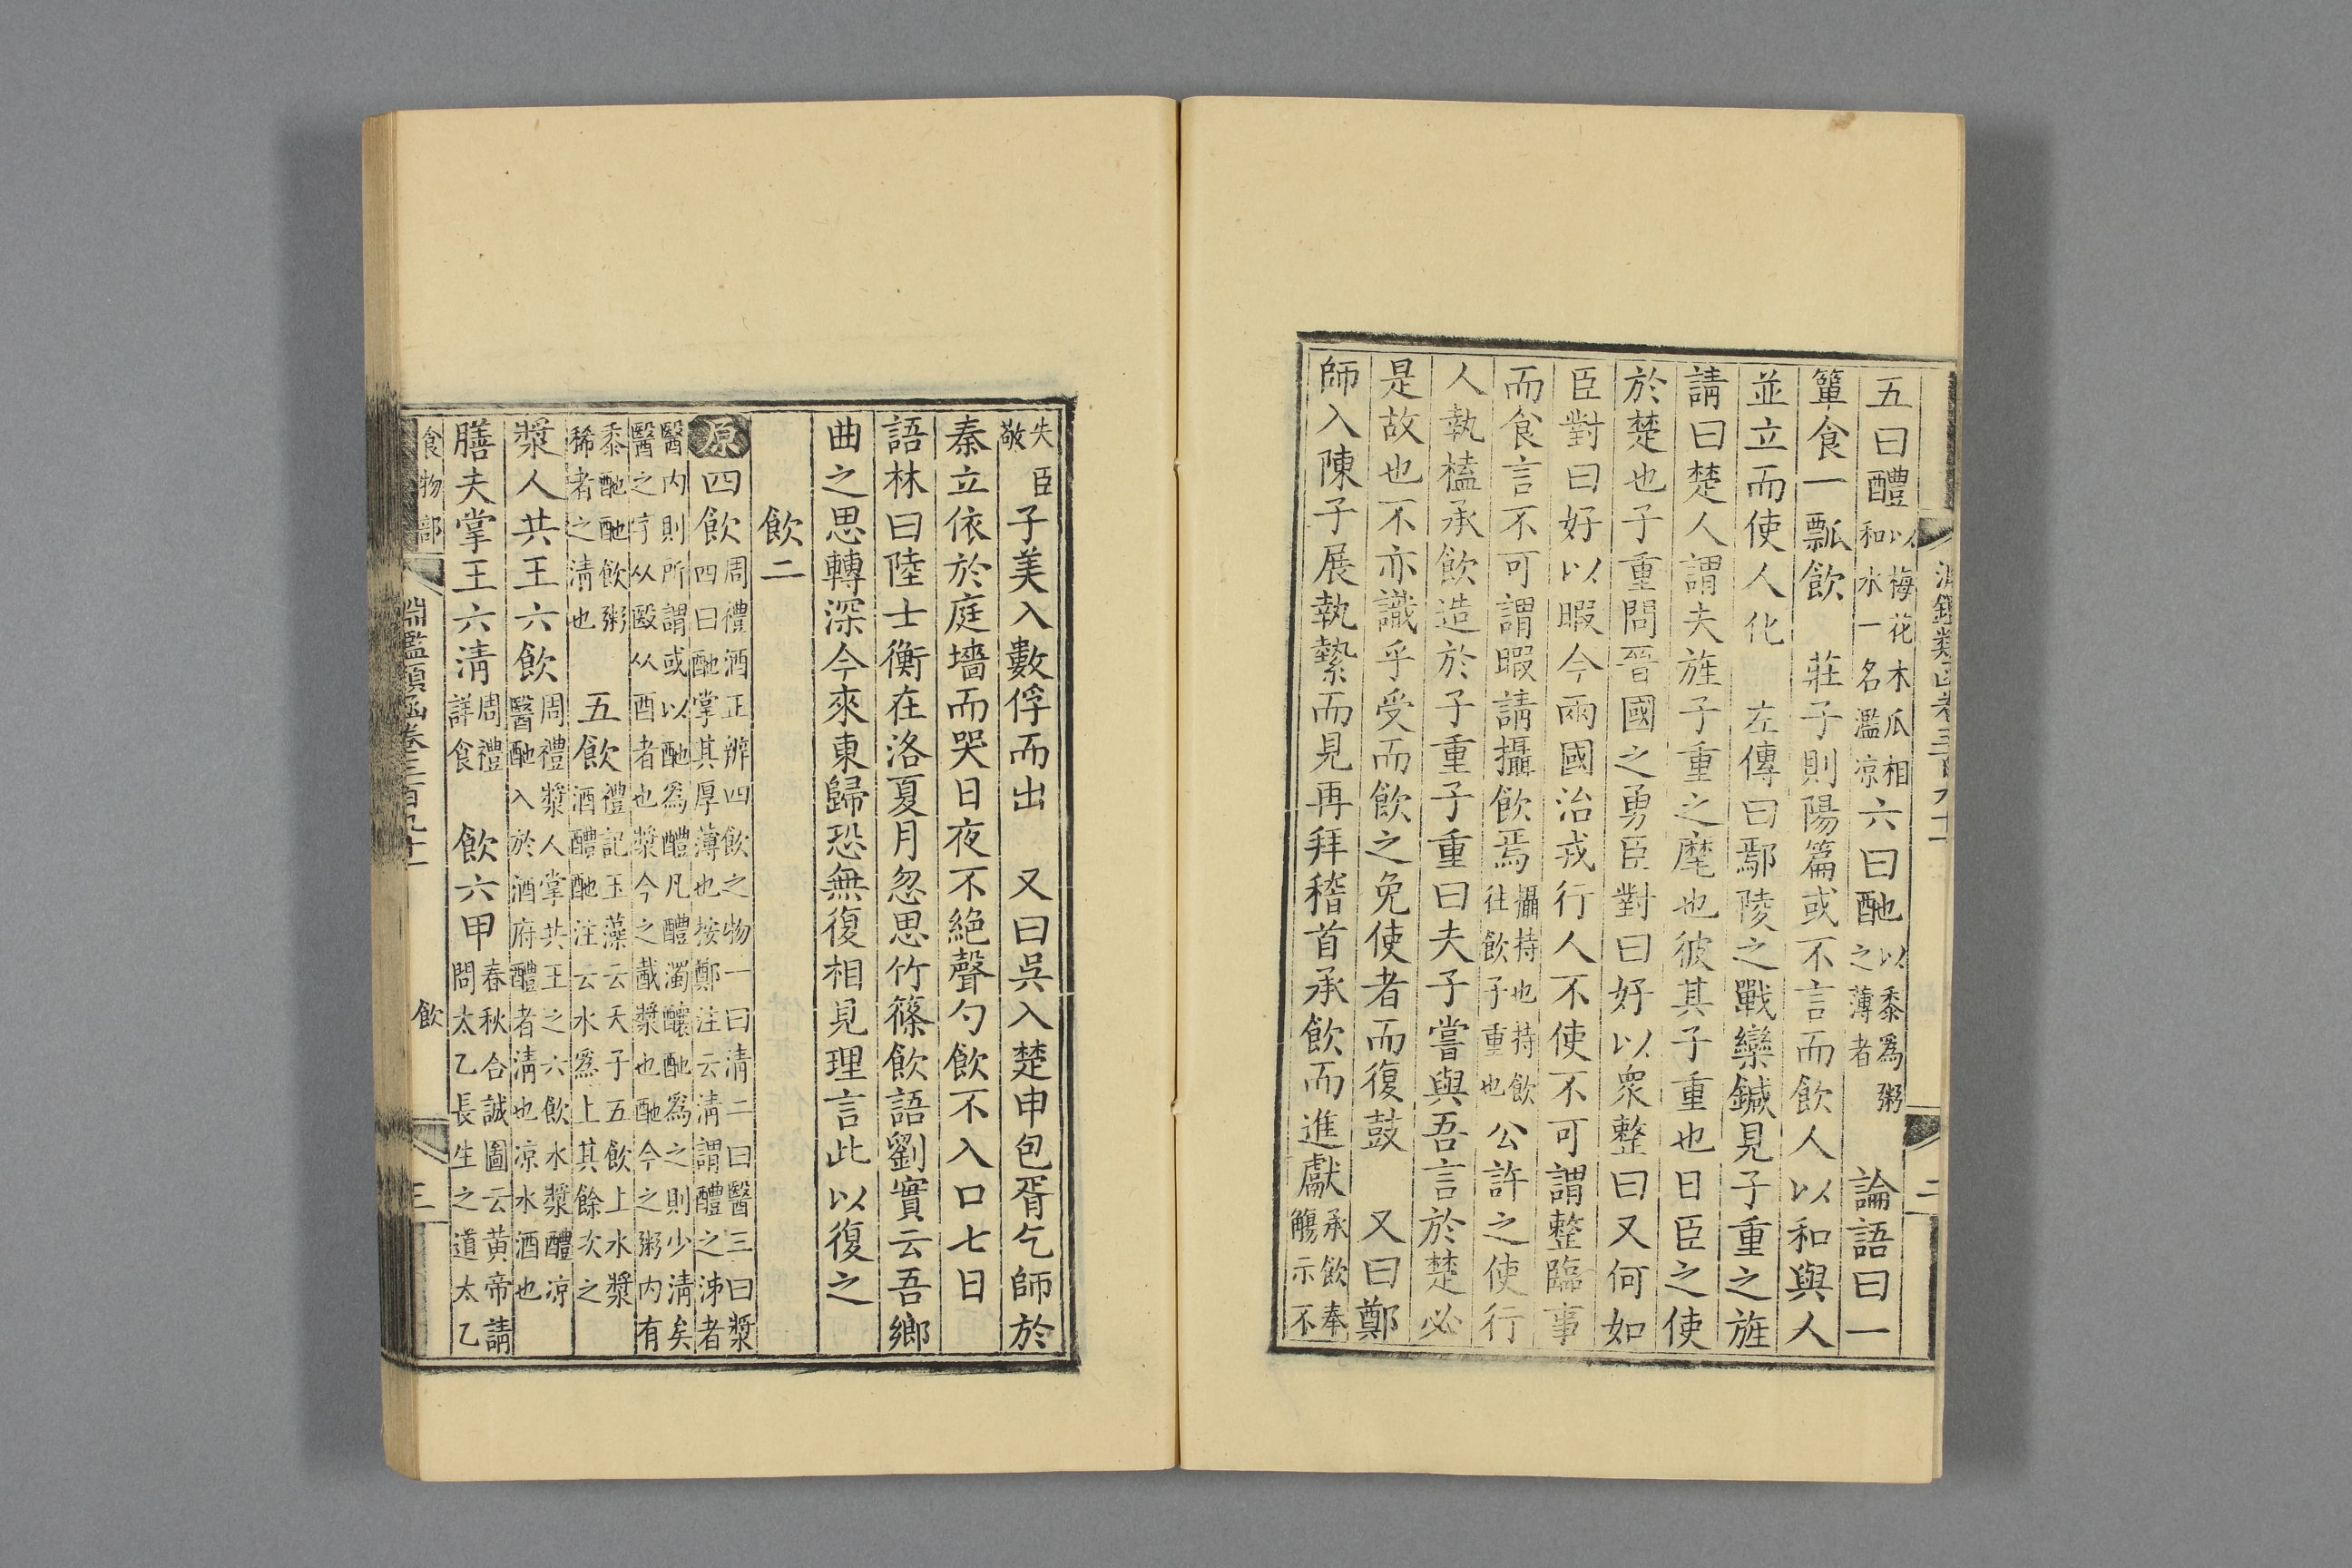 五曰醴以梅花木瓜相和水一名濫凉六曰酏以黍爲粥之薄者 論語曰一
簞食一瓢飲 莊子則陽篇或不言而飲人以和與人
並立而使人化 左傳曰鄢陵之戰欒鍼見子重之旌
請曰楚人謂夫旌子重之麾也彼其子重也日臣之使
於楚也子重問晉國之勇臣對曰好以衆整曰又何如
臣對曰好以暇今兩國治戎行人不使不可謂整臨事
而食言不可謂暇請攝飲焉攝持也持飲往飲子重也公許之使行
人執榼承飲造於子重子重曰夫子嘗與吾言於楚必
是故也不亦識乎受而飲之免使者而復鼓 又曰鄭
師入陳子展執縶而見再拜稽首承飲而進獻承飲奉觴示不
失臣敬子美入數俘而出 又曰吳入楚申包胥乞師於
秦立依於庭墻而哭日夜不絕聲勺飲不入口七日
語林曰陸士衡在洛夏月忽思竹篠飲語劉實云吾鄉
曲之思轉深今來東歸恐無復相見理言此以復之
飲二
原四飲周禮酒正辨四飲之物一曰淸二曰醫三曰漿四曰酏掌其厚薄也按鄭注云淸謂醴之泲者
醫内則所謂或以酏爲醴凡醴濁釀酏爲之則少淸矣醫之字从殹从酉者也漿今之酨漿也酏今之粥内有
黍酏酏飲粥稀者之淸也 五飲禮記玉藻云天子五飲上水漿酒醴酏注云水爲上其餘次之
漿人共王六飲周禮漿人掌共王之六飲水漿醴凉醫酏入於酒府醴者淸也凉水酒也
膳夫掌王六淸周禮詳食 飲六甲春秋合誠圖云黄帝請問太乙長生之道太乙
食物部 淵鑑類函卷三百九十一 飲 三